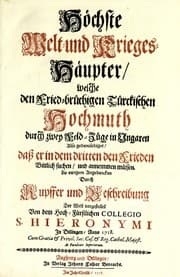 Höchste
Welt und Krieges-
Häupter/
welche
den Fried-brüchigen Türckischen
Hochmuth
durch zwey Feld-Züge in Ungarn
Also gedemüthiget/
daß er in dem dritten den Frieden
Bittlich suchen/ und annemmen müssen.
Zu ewigem Angedencken
Durch
Kupffer und Beschreibung
Der Welt vorgestellet
Von dem Hoch-Fürstlichen COLLEGIO
S. HIERONYMI
In Dilingen/ Anno 1718.
Cum Gratia & Privil. Sac. Cæs. & Reg. Cathol. Majest.
& Facultate Superiorum.
Augspurg und Dillingen/
In Verlag Johann Caspar Bencards